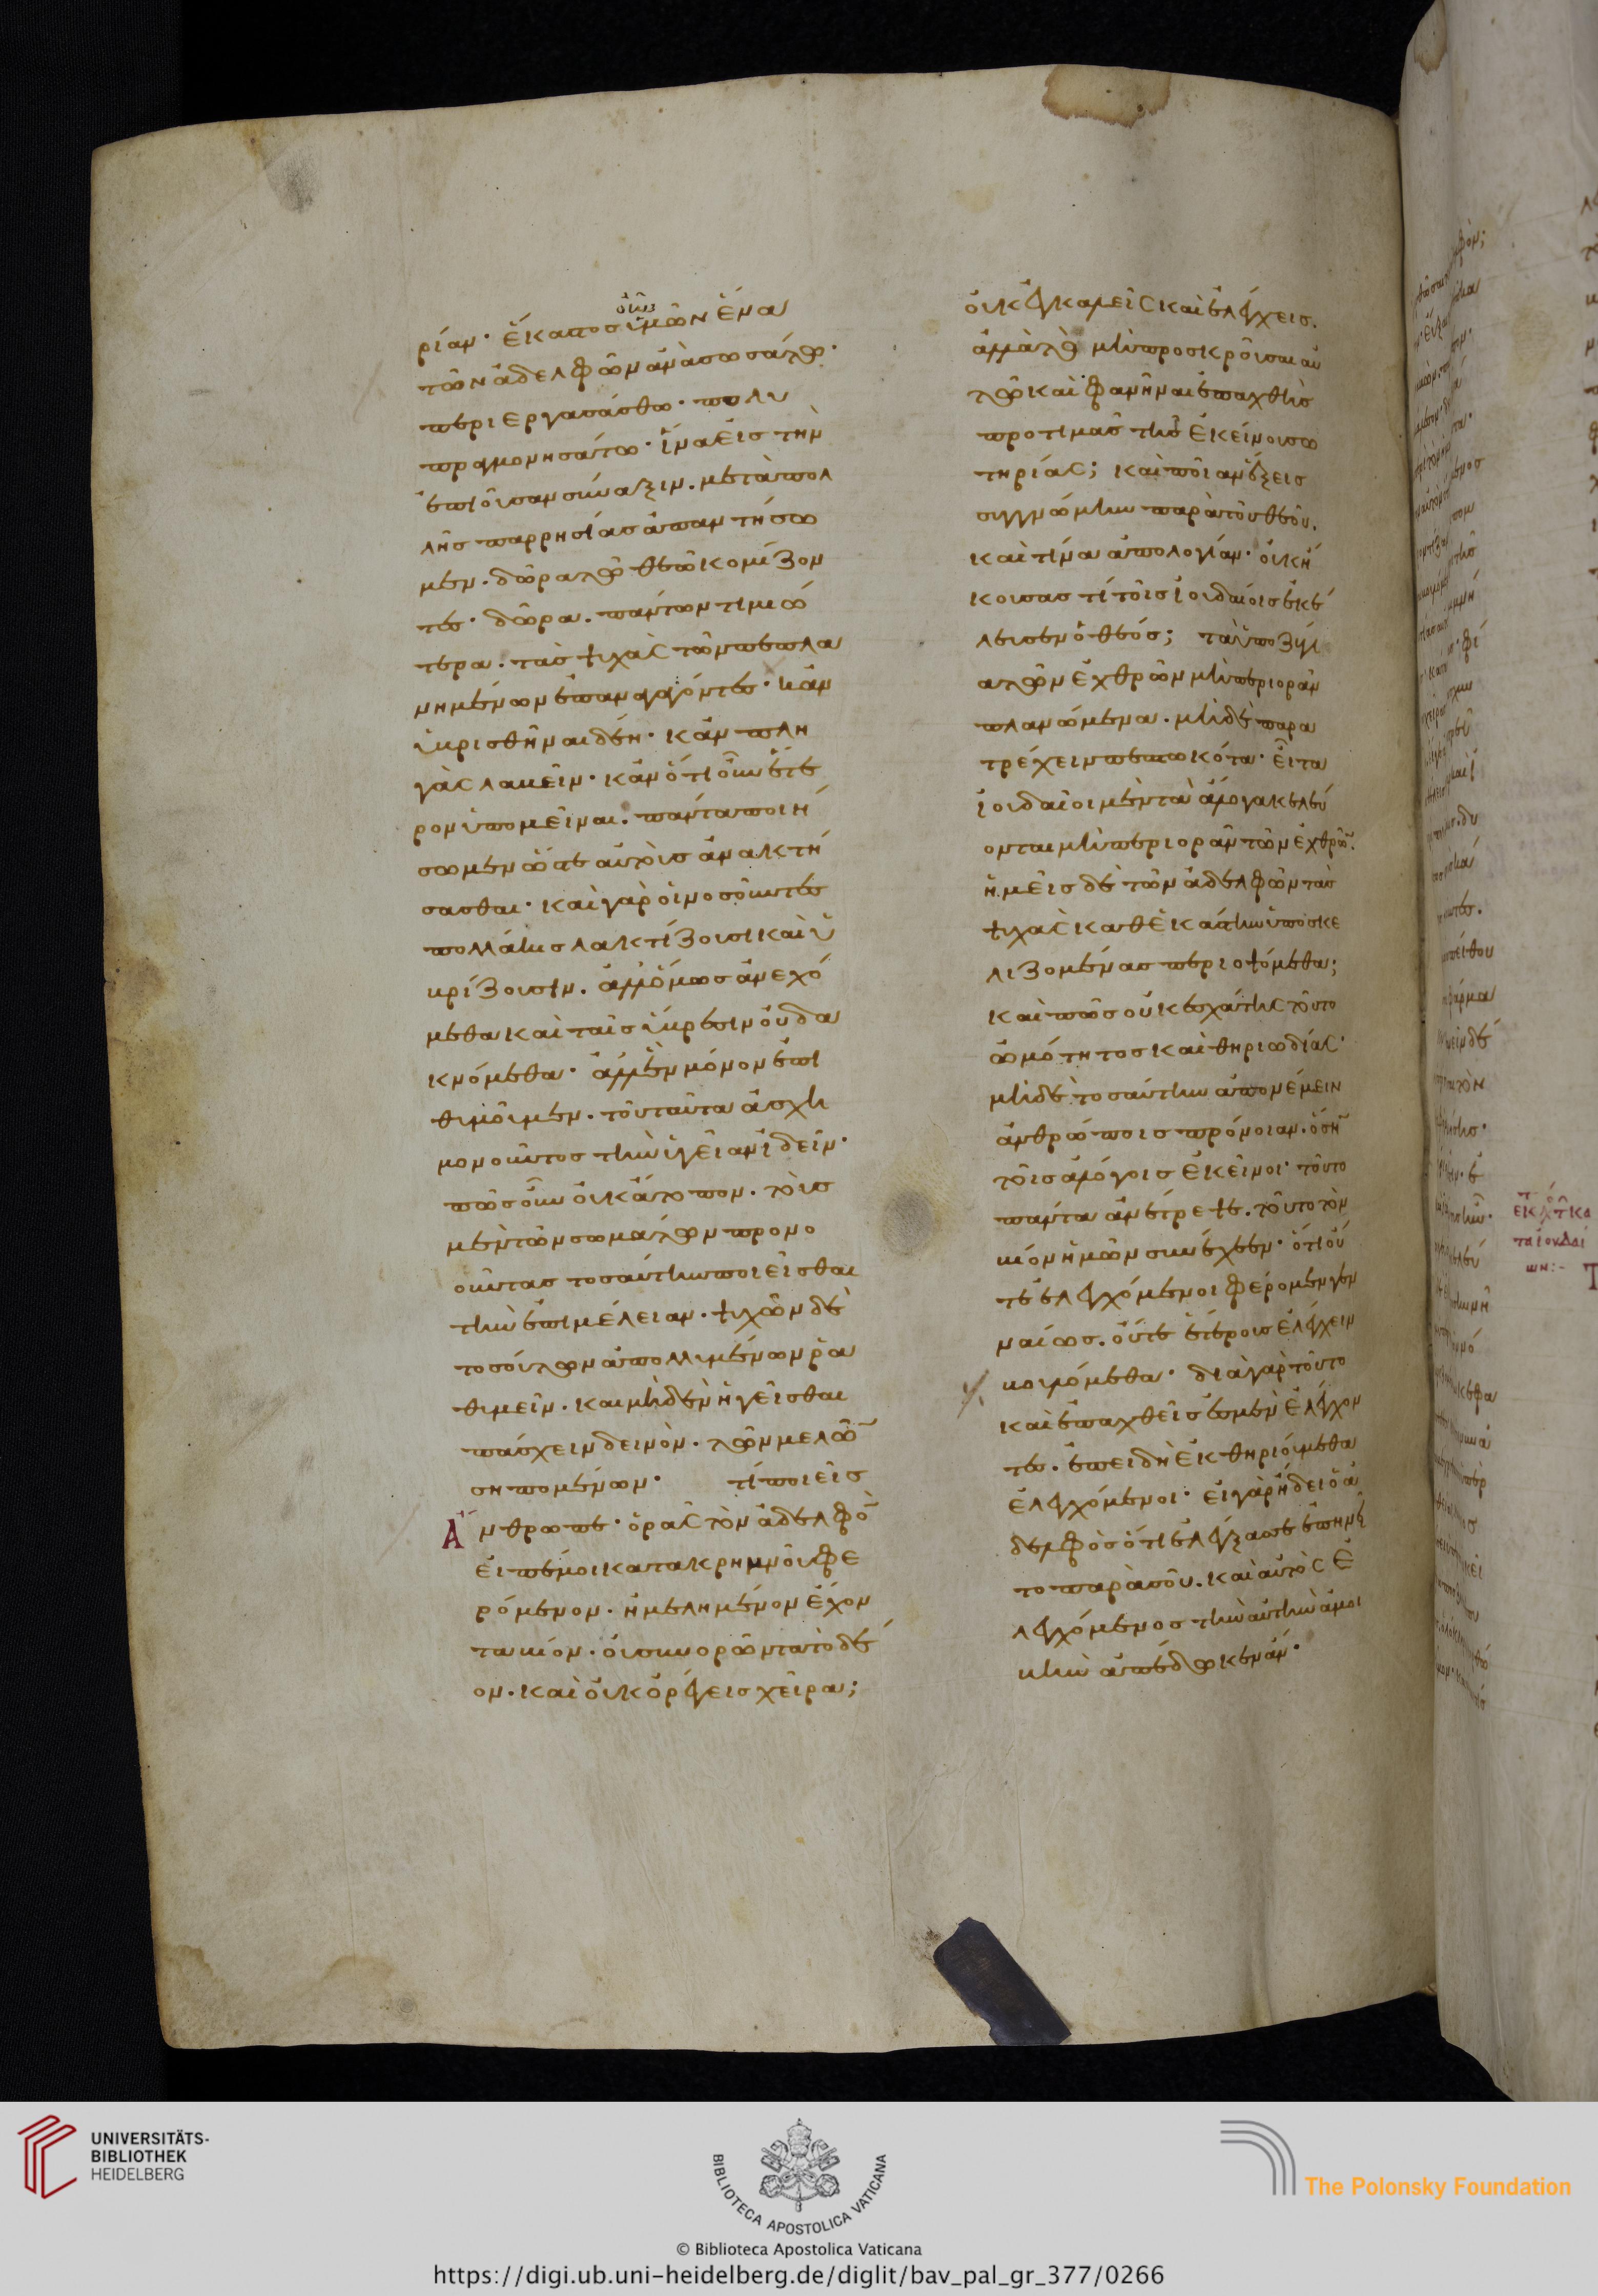 οὖν
ρίαν· ἕκαστος ὑμῶν ἕνα
τῶν ἀδελφῶν ἀνασωσάτω·
περιεργασάσθω· πολυ
πραγμονησάτω· ἵνα εἰς τὴν
ἐπιοῦσαν σύναξιν. μετὰ πολ
λῆς παρρησίας ἀπαντήσω
μεν. δῶρα τῶ θεῶ κομίζον
τες· δῶρα. πάντων τιμιώ
τερα. τὰς ψυχὰς τῶν πεπλα
νημένων ἐπαναγαγόντες· κἂν
ὑβρισθῆναι δέη· κἂν πλη
γὰς λαβεῖν· κἂν ὁτιοῦν ἕτε
ρον ὑπομεῖναι. πάντα ποιή
σωμεν ὥστε αὐτοὺς ἀνακτή
σασθαι· καὶ γὰρ οἱ νοσοῦντες
πολλάκις λακτίζουσι καὶ ὑ
βρίζουσιν. ἀλλ' ὅμως ἀνεχό
μεθα καὶ ταῖς ὕβρεσιν οὐ δα
κνόμεθα· ἀλλ' ἓν μόνον ἐπι
θυμοῦμεν. τοῦ ταῦτα ἀσχη
μονοῦντος τὴν ὑγείαν ἰδεῖν·
πῶς οὖν οὐκ ἄτοπον. τοὺς
μὲν τῶν σωμάτων προνο
οῦντας τοσαύτην ποιεῖσθαι
τὴν ἐπιμέλειαν· ψυχῶν δὲ
τοσούτων ἀπολλυμένων ῥα
θυμεῖν. καὶ μηδὲν ἡγεῖσθαι
πάσχειν δεινὸν. τῶν μελῶν
σηπομένων· τί ποιεῖς
ἄνθρωπε· ὁρᾶς τὸν ἀδελφὸν
εἰπέ μοι κατὰ κρημνοῦ φε
ρόμενον. ἠμελημένον ἔχον
τα βίον. οὐ συνορῶντα τὸ δέ
ον. καὶ οὐκ ὀρέγεις χεῖρα;
οὐκ ἐγκαλεῖς καὶ ἐλέγχεις.
ἀλλὰ τὸ μὴ προσκροῦσαι αὐ
τῶ καὶ φανῆναι ἐπαχθὴς
προτιμᾶς τῆς ἐκείνου σω
τηρίας; καὶ ποίαν ἕξεις
συγγνώμην παρὰ τοῦ θεοῦ.
καὶ τίνα ἀπολογίαν· οὐκ ἤ
κουσας τί τοῖς ἰουδαίοις ἐκέ
λευσεν ὁ θεός; τὰ ὑποζύγι
α τῶν ἐχθρῶν μὴ περιορᾶν
πλανώμενα. μηδὲ παρα
τρέχειν πεπτωκότα· εἶτα
ἰουδαῖοι μὲν τὰ ἄλογα κελεύ
ονται μὴ περιορᾶν τῶν ἐχθρῶν.
ἡμεῖς δὲ τῶν ἀδελφῶν τὰς
ψυχὰς καθεκάστην ὑποσκε
λιζομένας περιοψόμεθα;
καὶ πῶς οὐκ ἐσχάτης τοῦτο
ὠμότητος καὶ θηριωδίας·
μηδὲ τοσαύτην ἀπονέμειν
ἀνθρώποις πρόνοιαν. ὅσην
τοῖς ἀλόγοις ἐκεῖνοι· τοῦτο
πάντα ἀνέτρεψε. τοῦτο τὸν
βίον ἡμῶν συνέχεεν· ὅτι οὔ
τε ἐλεγχόμενοι φέρομεν γεν
ναίως. οὔτε ἑτέρους ἐλέγχειν
βουλόμεθα· διὰ γὰρ τοῦτο
καὶ ἐπαχθεῖς ἐσμὲν ἐλέγχον
τες. ἐπειδὴ ἐκθηριούμεθα
ἐλεγχόμενοι· εἰ γὰρ ἤδει ὁ ἀ
δελφὸς ὅτι ἐλέγξας σε ἐπηνεῖ
το παρὰ σοῦ. καὶ αὐτὸς ἐ
λεγχόμενος τὴν αὐτὴν ἀμοι
βὴν ἀπέδωκεν ἄν·
UNIVERSITÄTS-
BIBLIOTHEK
HEIDELBERG
BIBLIOTECA APOSTOLICA VATICANA
The Polonsky Foundation
© Biblioteca Apostolica Vaticana
https://digi.ub.uni-heidelberg.de/diglit/bav_pal_gr_377/0266